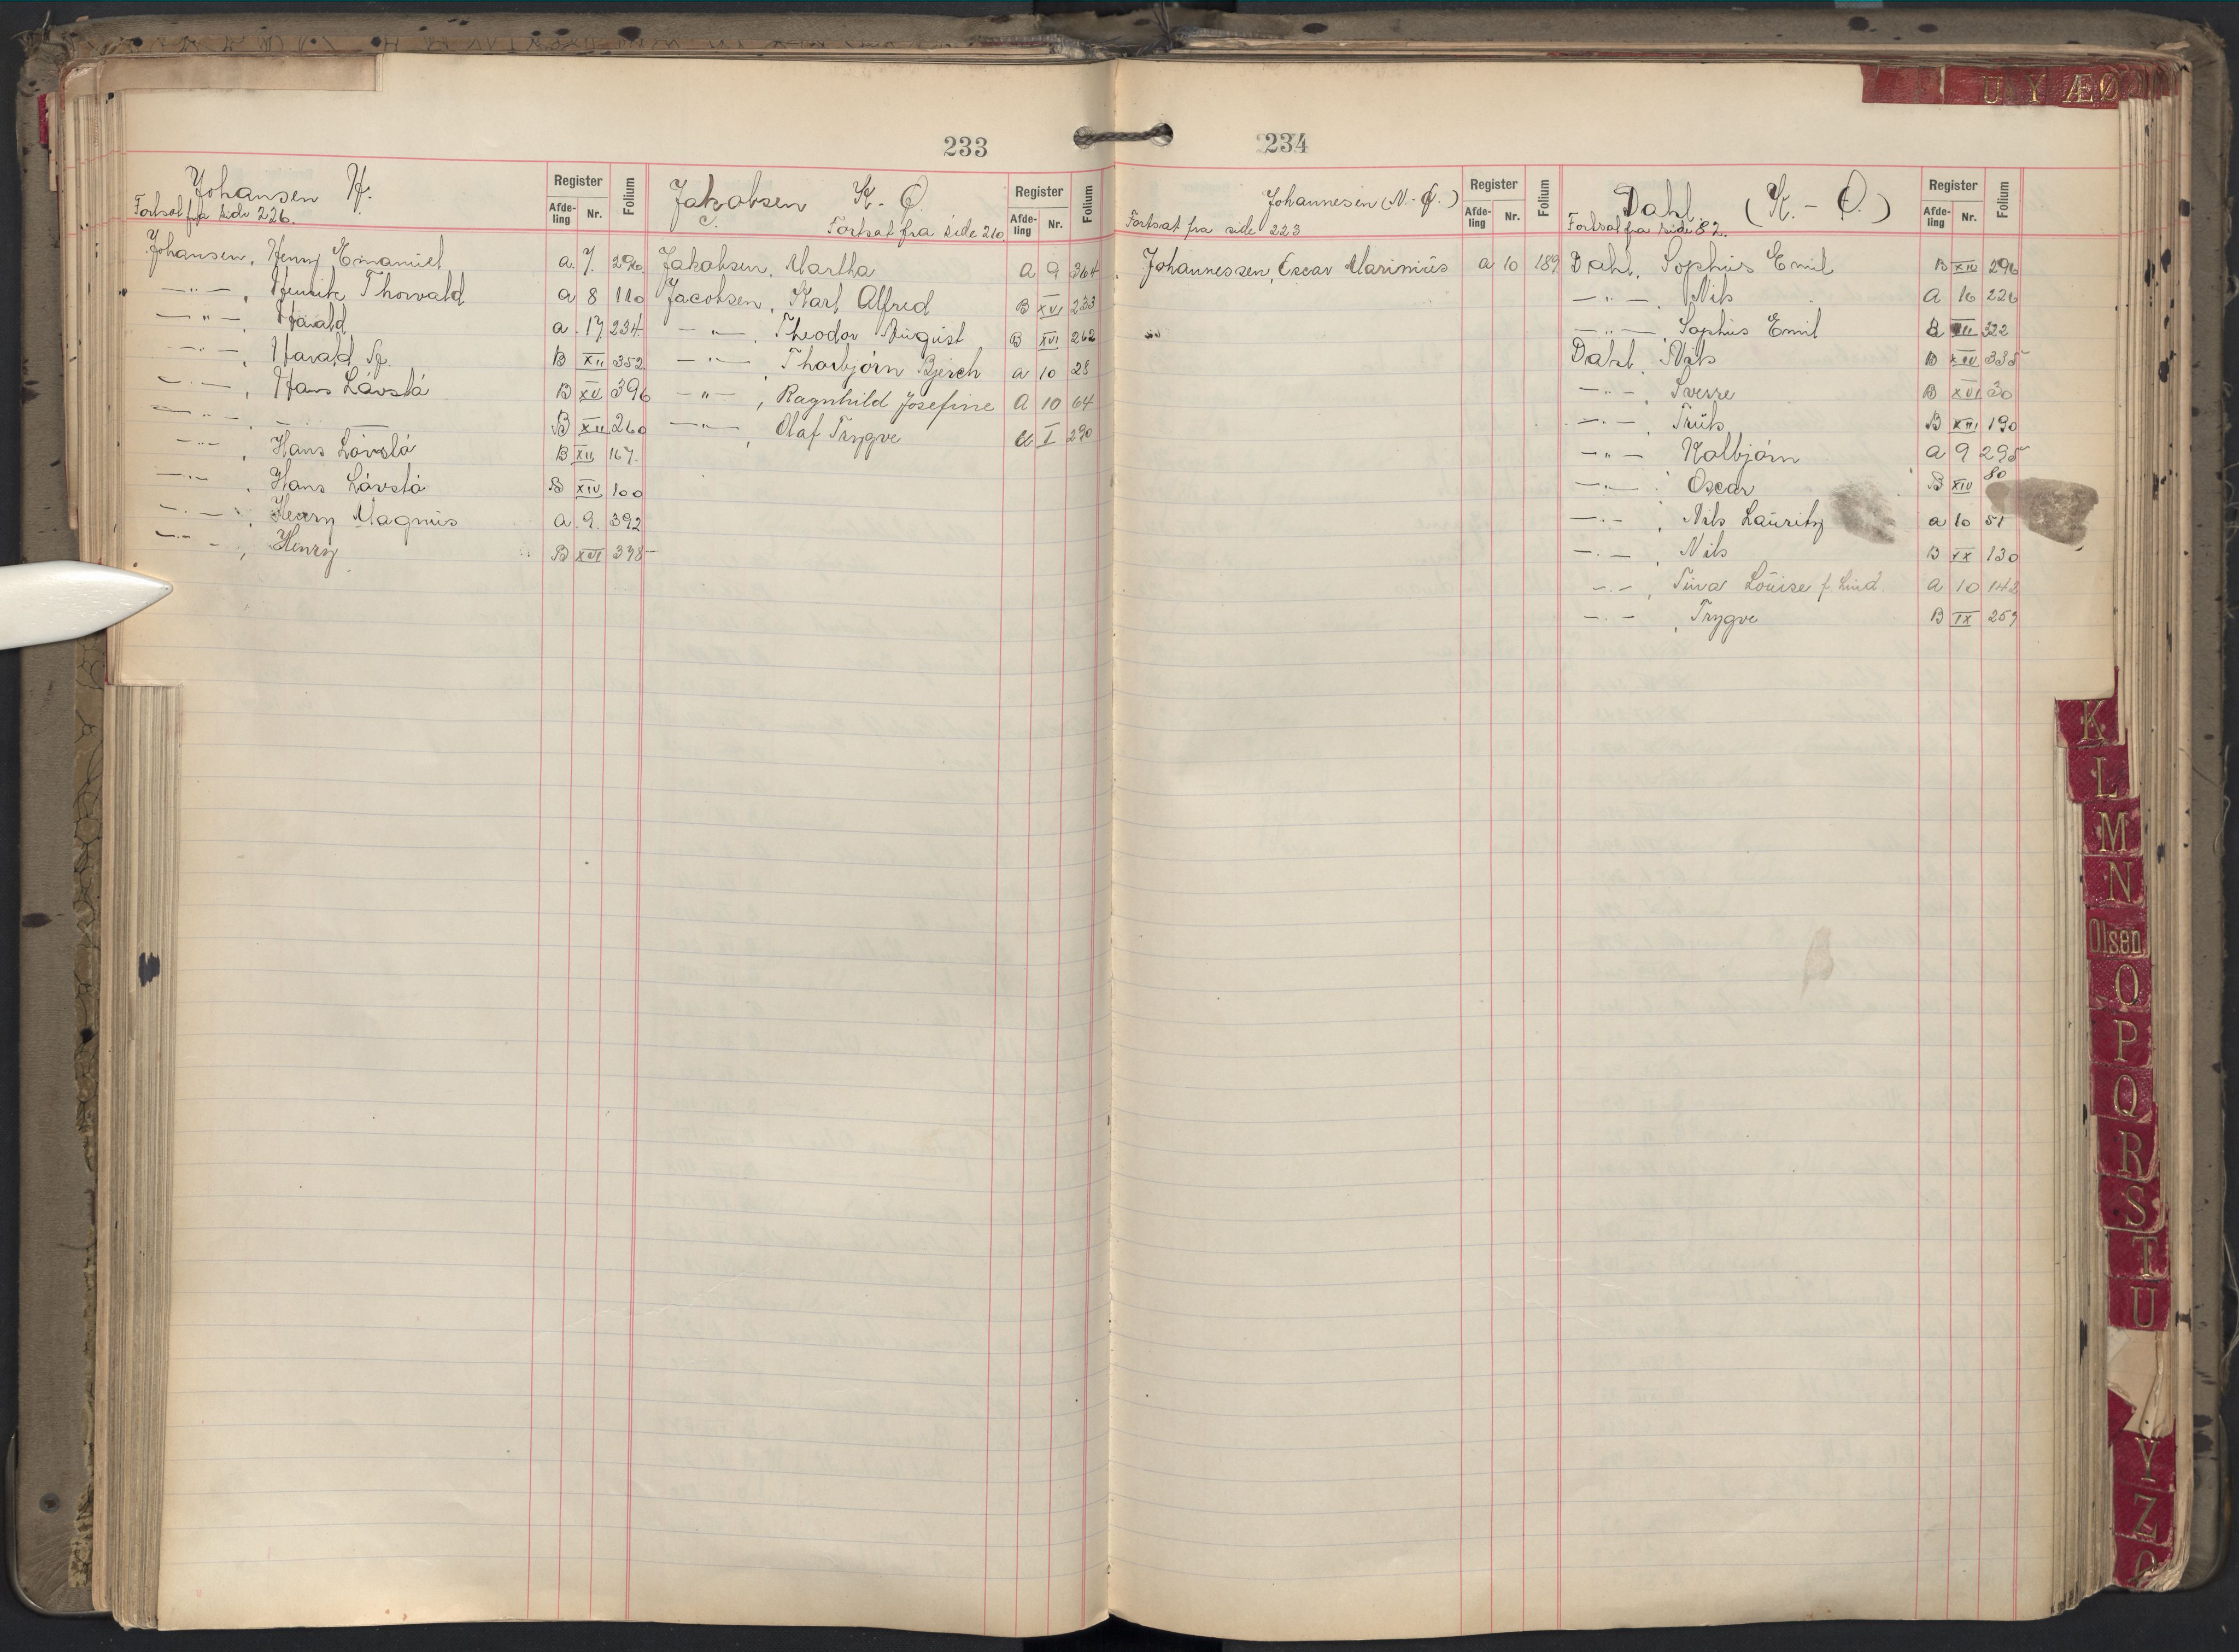 233
Johansen H.
Fortsat fra side 226.
Register
Afde-
ling
Nr.
Folium
Johansen, Henry Emanuel a. 7. 296
—"—, Henrik Thorvald a 8 110
—"—, Harald a. 17 234
—"—, Harald Sg. B XII 352
—"—, Hans Lövslö B XV 396
—"—, — — B XII 260
—"—, Hans Lövslö B XII 167.
—"—, Hans Lövslö B XIV 100
—"—, Henry Magnus a. 9. 392
—"—, Henry B XVI 398
Jakobsen K.-Ø.
c.
Fortsat fra side 210.
Register
Afde-
ling
Nr.
Folium
Jakobsen, Martha a 9 364
Jacobsen, Karl Alfred B XVI 233
—"—, Theodor August B XVI 262
—"—, Thorbjörn Bjerch a 10 28
—"—, Ragnhild Josefine a 10 64
—"—, Olaf Trygve a I 290
234
Johannesen (N.-Ø.)
Fortsat fra side 223
Register
Afde-
ling
Nr.
Folium
Johannessen, Oscar Marinius a 10 189
Dahl. (K.-Ø.)
Fortsat fra side 82.
Register
Afde-
ling
Nr.
Folium
Dahl, Sophus Emil B XIII 296
—"—, Nils a 16 226
—"—, Sophus Emil 322
Dahl, Nils B 335
—"—, Sverre B XVI 30
—"—, Truls B XIII 190
—"— Kolbjörn a 9 295
—"— Oscar B XIV 80
—"—, Nils Lauritz a 10 51
—"—, Nils B XX 130
—"—, Louise f. Lind a 10 142
—"—, Trygve B IX 259
U Y Æ Ø
K
L
M
N
Olsen
O
P
Q
R
S
T
U
Y
Z